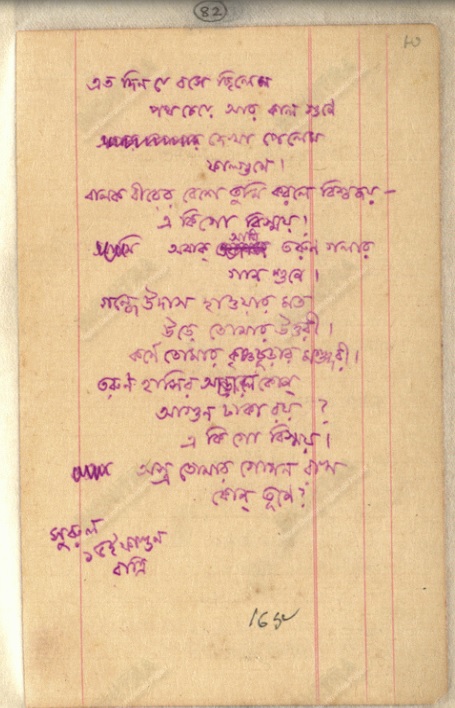 82
এত দিন যে বসে ছিলেম
পথ চেয়ে আর কাল গুনে
দেখা পেলেম
ফাল্গুনে।
বালক বীরের বেশে তুমি করলে বিশ্বজয় –
এ কি গো বিস্ময়!
অবাক আমি তরুণ গলার
গান শুনে।
গন্ধে উদাস হাওয়ার মত
উড়ে তোমার উত্তরী।
কর্ণে তোমার কৃষ্ণচূড়ার মঞ্জরী।
তরুণ হাসির আড়ালে কোন্
আগুন ঢাকা রয় ?
এ কি গো বিস্ময়।
অস্ত্র তোমার গোপন রাখ
কোন্ তূণে?
সুরুল
ফাল্গুন
রাত্রি